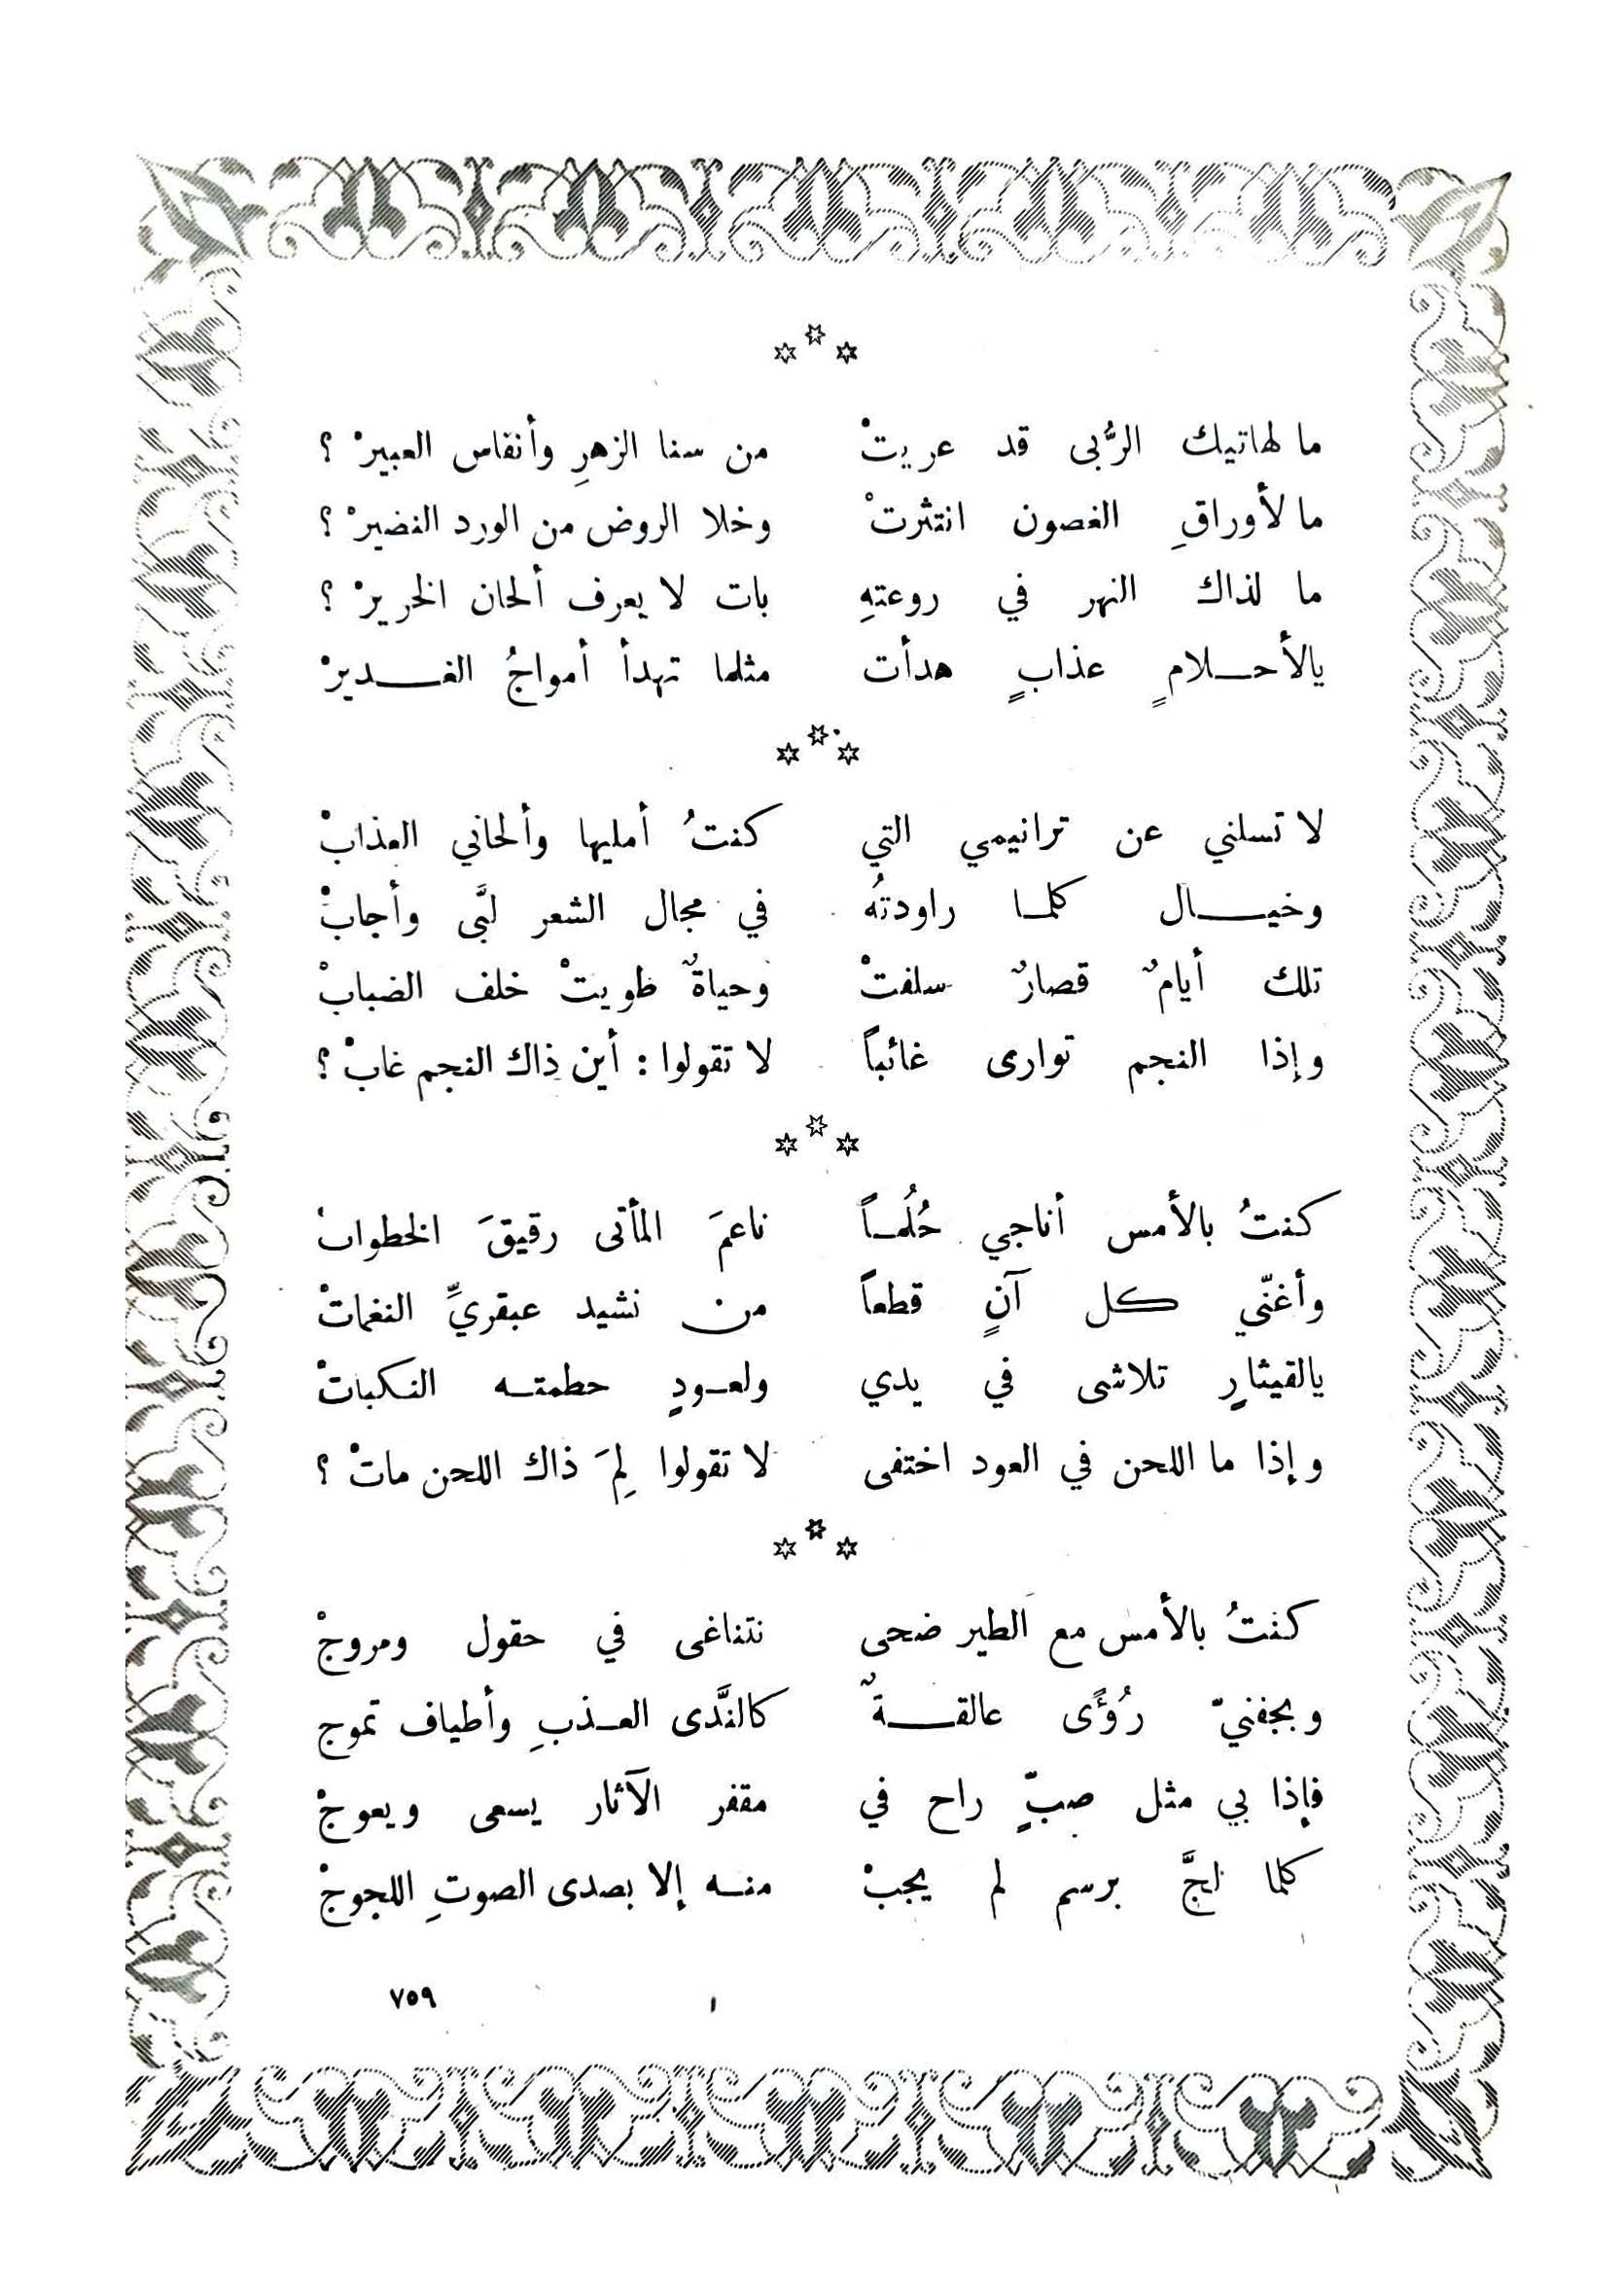 ما لهاتيك الرُّبى قد عريتْ من سنا الزهرِ وأنفاس العبيرْ ؟
ما لأوراقِ الغصون انتثرتْ وخلا الروض من الورد النضيرْ ؟
ما لذاك النهر في روعتهِ بات لا يعرف ألحان الخريرْ ؟
يالأحـلامٍ عذابٍ هدأت مثلما تهدأ أمواجُ الغـديرْ
لا تسلني عن ترانيمي التي كنتُ أمليها وألحاني العذابْ
وخيـال كلما راودتُه في مجال الشعر لبَّى وأجابْ
تلك أيامٌ قصارٌ سلفتْ وحياةٌ طويتْ خلف الضبابْ
وإذا النجم توارى غائباً لا تقولوا : أين ذاك النجم غابْ ؟
كنتُ بالأمس أناجي حُلُماً ناعمَ المأتى رقيقَ الخطواتْ
وأغنّي كل آنٍ قطعاً من نشيد عبقريِّ النغماتْ
يالقيثارٍ تلاشى في يدي ولعـودٍ حطمتـه النكباتْ
وإذا ما اللحن في العود اختفى لا تقولوا لِمَ ذاك اللحن ماتْ ؟
كنتُ بالأمس مع الطير ضحى نتناغى في حقول ومروجْ
وبجفنيّ رُؤًى عالقـةٌ كالنَّدى العـذبِ وأطياف تموج
فإذا بي مثل صبٍّ راح في مقفر الآثار يسعى ويعوجْ
كلما لجَّ برسم لم يجبْ منـه إلا بصدى الصوتِ اللجوجْ
٧٥٩